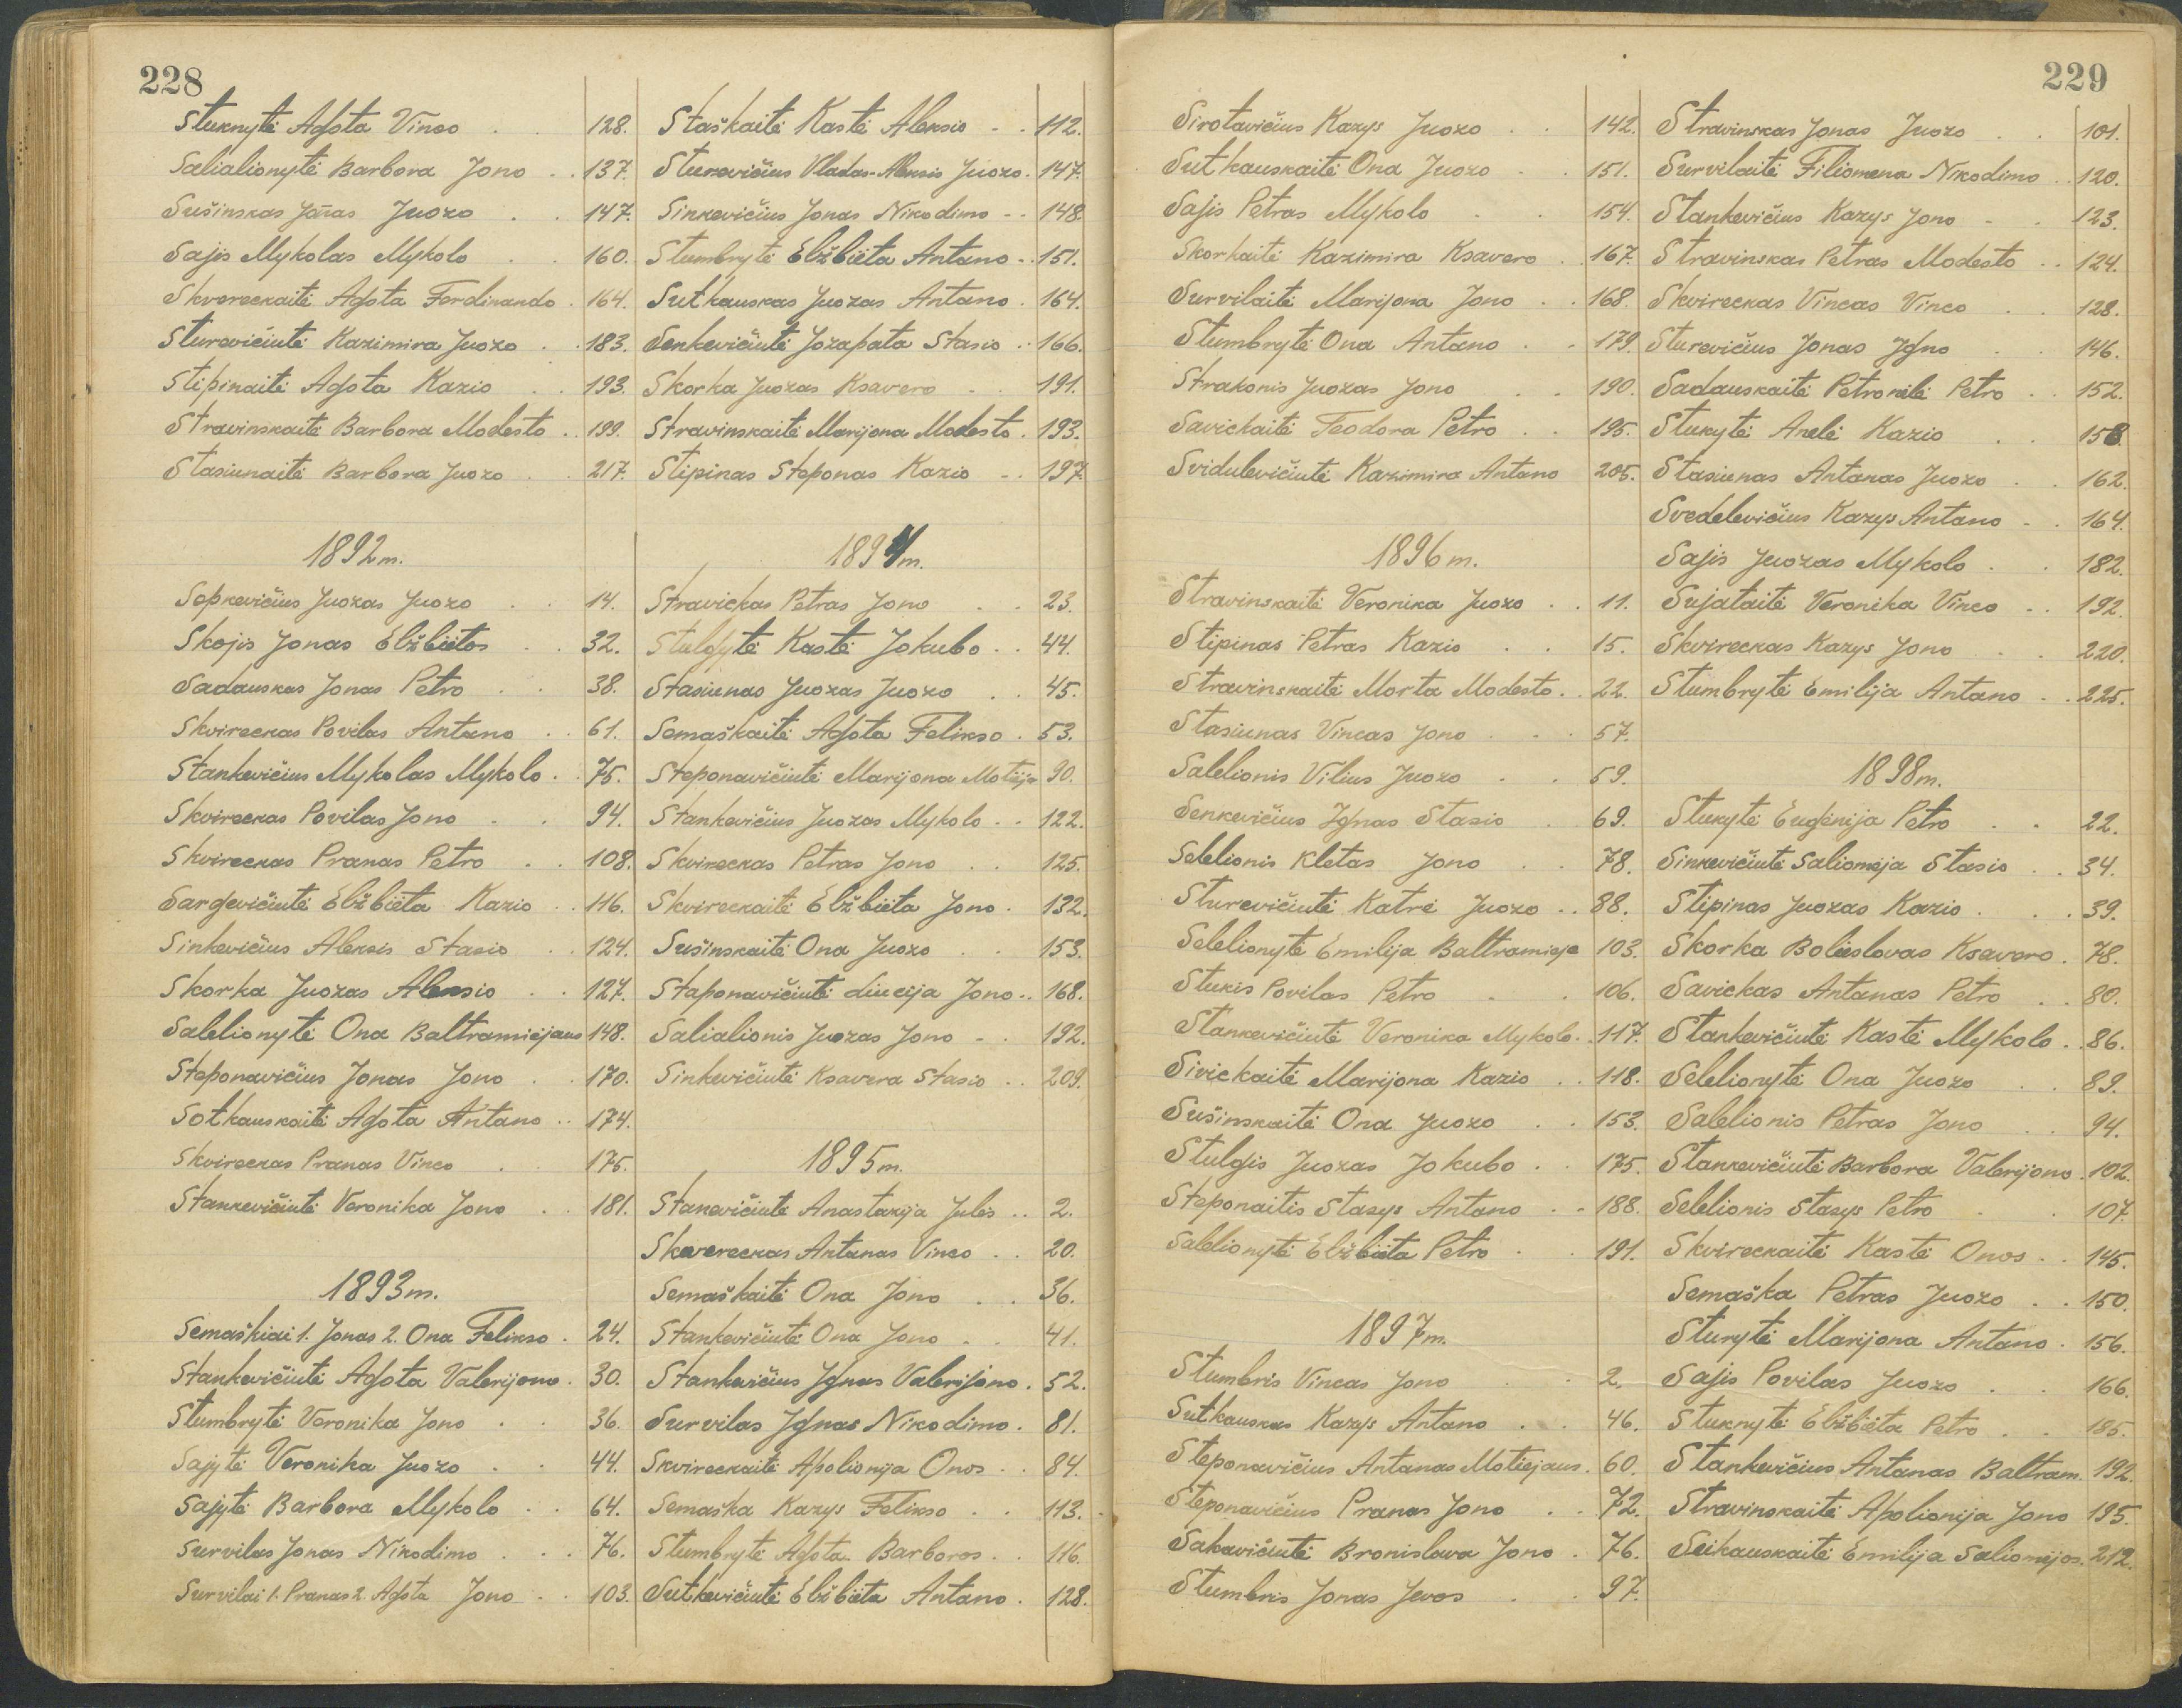 228
Stuknytė Agota Vinco . . 128.
Salialionytė Barbora Jono . . 137.
Sušinskas Jonas Juozo . . 147.
Sajis Mykolas Mykolo . . 160.
Skvereckaitė Agota Ferdinando . 164.
Sturevičiutė Kazimira Juozo . . 183.
Stipinaitė Agota Kazio . . 193.
Stravinskaitė Barbora Modesto . . 199.
Stasiunaitė Barbora Juozo . . 217.
1892 m.
Sopkevičius Juozas Juozo . . 14.
Skojis Jonas Elžbietos . . 32.
Sadauskas Jonas Petro . . 38.
Skvireckas Povilas Antano . . 61.
Stankevičius Mykolas Mykolo . . 75.
Skvireckas Povilas Jono . . 94.
Skvireckas Pranas Petro . . 108.
Sargevičiutė Elžbieta Kazio . . 116.
Sinkevičius Aleksis Stasio . . 124.
Skorka Juozas Aleksio . . 127.
Salelionytė Ona Baltramiejaus 148.
Steponavičius Jonas Jono . . 170.
Sotkauskaitė Agota Antano . . 174.
Skvireckas Pranas Vinco . . 175.
Stankevičiutė Veronika Jono . . 181.
1893 m.
Semaškiai 1. Jonas 2. Ona Felikso . 24.
Stankevičiutė Agota Valerijono . 30.
Stumbrytė Veronika Jono . . 36.
Sajytė Veronika Juozo . . 44.
Sajytė Barbora Mykolo . . 64.
Survilas Jonas Nikodimo . . . 76.
Survilai 1. Pranas 2. Agota Jono . . 103.
Staškaitė Kastė Aleksio . . 112.
Sturevičius Vladas-Aleksis Juozo . 147.
Sinkevičius Jonas Nikodimo . . 148.
Stumbrytė Elžbieta Antano . . 151.
Sutkauskas Juozas Antano . 164.
Senkevičiutė Jozapata Stasio . . 166.
Skorka Juozas Ksavero . . 191.
Stravinskaitė Marijona Modesto . 193.
Stipinas Steponas Kazio . . 197.
1894 m.
Stravickas Petras Jono . . 23.
Stulgytė Kastė Jokubo . . 44.
Stasiunas Juozas Juozo . . 45.
Semaškaitė Agota Felikso . 53.
Steponavičiutė Marijona Motieja 90.
Stankevičius Juozas Mykolo . . 122.
Skvireckas Petras Jono . . 125.
Skvireckaitė Elžbieta Jono . 132.
Sušinskaitė Ona Juozo . . 153.
Staponavičiutė Liucija Jono . . 168.
Salialionis Juozas Jono . . 192.
Sinkevičiutė Ksavera Stasio . . 209.
1895 m.
Stankevičiutė Anastazija Julės . . 2.
Skvereckas Antanas Vinco . . 20.
Semaškaitė Ona Jono . . 36.
Stankevičiutė Ona Jono . . 41.
Stankevičius Ignas Valerijono . 52.
Survilas Ignas Nikodimo . 81.
Skvireckaitė Apolionija Onos . . 84.
Semaška Kazys Felikso . . 113.
Stumbrytė Agota Barboros . . 116.
Sutkevičiutė Elžbieta Antano . 128.
229
Sirotavičius Kazys Juozo . . 142.
Sutkauskaitė Ona Juozo . . 151.
Sajis Petras Mykolo . . 154.
Skorkaitė Kazimira Ksavero . . 167.
Survilaitė Marijona Jono . . 168.
Stumbrytė Ona Antano . . 179.
Strakonis Juozas Jono . . 190.
Savickaitė Teodora Petro . . 195.
Svidulevičiutė Kazimira Antano 205.
1896 m.
Stravinskaitė Veronika Juozo . . 11.
Stipinas Petras Kazio . . 15.
Stravinskaitė Morta Modesto . . 22.
Stasiunas Vincas Jono . . . 57.
Salelionis Vilius Juozo . . 59.
Senkevičius Ignas Stasio . 69.
Selelionis Kletas Jono . . 78.
Sturevičiutė Katrė Juozo . . 88.
Selelionytė Emilija Baltramieja 103.
Stukis Povilas Petro . . 106.
Stankevičiutė Veronika Mykolo . . 117.
Sivickaitė Marijona Kazio . . 118.
Sušinskaitė Ona Juozo . . 153.
Stulgis Juozas Jokubo . . 175.
Steponaitis Stasys Antano . . 188.
Salelionytė Elžbieta Petro . . 191.
1897 m.
Stumbris Vincas Jono . . 2.
Sutkauskas Kazys Antano . . 46.
Steponavičius Antanas Motiejaus . 60.
Steponavičius Pranas Jono . . 72.
Sakavičiutė Bronislava Jono . 76.
Stumbris Jonas Jevos . . 97.
Stravinskas Jonas Juozo . . 101.
Survilaitė Filiomena Nikodimo . . 120.
Stankevičius Kazys Jono . . 123.
Stravinskas Petras Modesto . . 124.
Skvireckas Vincas Vinco . . 128.
Sturevičius Jonas Igno . . 146.
Sadauskaitė Petronėlė Petro . . 152.
Stukytė Anelė Kazio . . 158.
Stasiunas Antanas Juozo . . 162.
Svedelevičius Kazys Antano . . 164.
Sajis Juozas Mykolo . . 182.
Sujataitė Veronika Vinco . . 192.
Skvireckas Kazys Jono . . 220.
Stumbrytė Emilija Antano . . 225.
1898 m.
Stukytė Eugenija Petro . . 22.
Sinkevičiutė Saliomeja Stasio . . 34.
Stipinas Juozas Kazio . . . 39.
Skorka Bolieslovas Ksavero . 78.
Savickas Antanas Petro . . 80.
Stankevičiutė Kastė Mykolo . . 86.
Selelionytė Ona Juozo . . 89.
Salelionis Petras Jono . . 94.
Stankevičiutė Barbora Valerijono . 102.
Selelionis Stasys Petro . . 107.
Skvireckaitė Kastė Onos . . 145.
Semaška Petras Juozo . . 150.
Stukytė Marijona Antano . 156.
Sajis Povilas Juozo . . 166.
Stuknytė Elžbieta Petro . . 185.
Stankevičius Antanas Baltram. 192.
Stravinskaitė Apolionija Jono 195.
Seikauskaitė Emilija Saliomijos . 212.